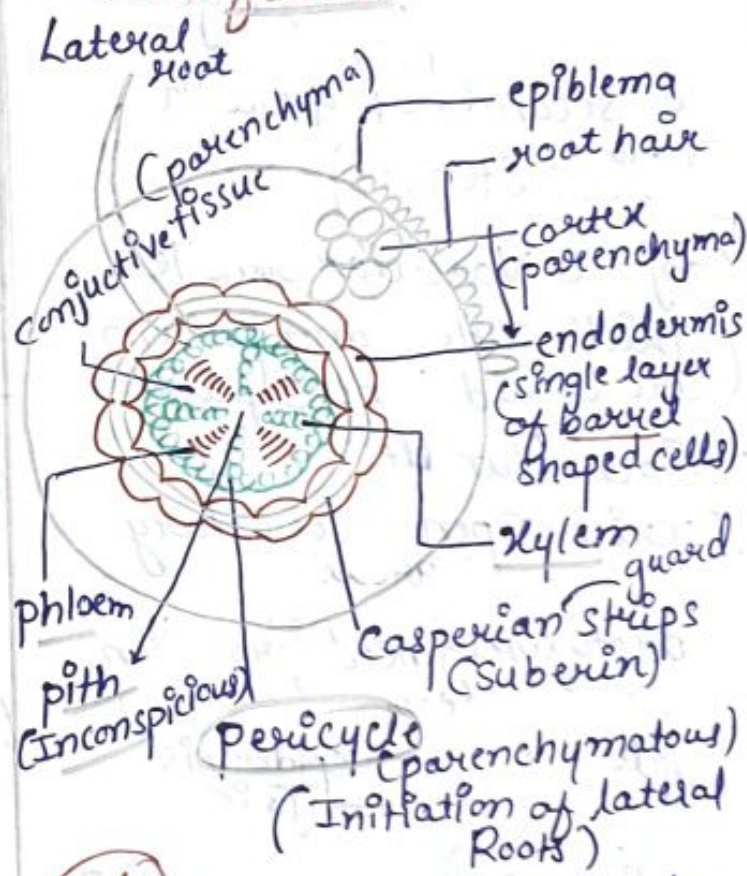 Lateral
root
(parenchyma)
Conjuctive tissue
epiblema
root hair
cortex
(parenchyma)
endodermis
(single layer
of barrel
shaped cells)
xylem
guard
Casperian strips
(Suberin)
phloem
pith
(Inconspicious)
Pericycle
(parenchymatous)
(Initiation of lateral
Roots)